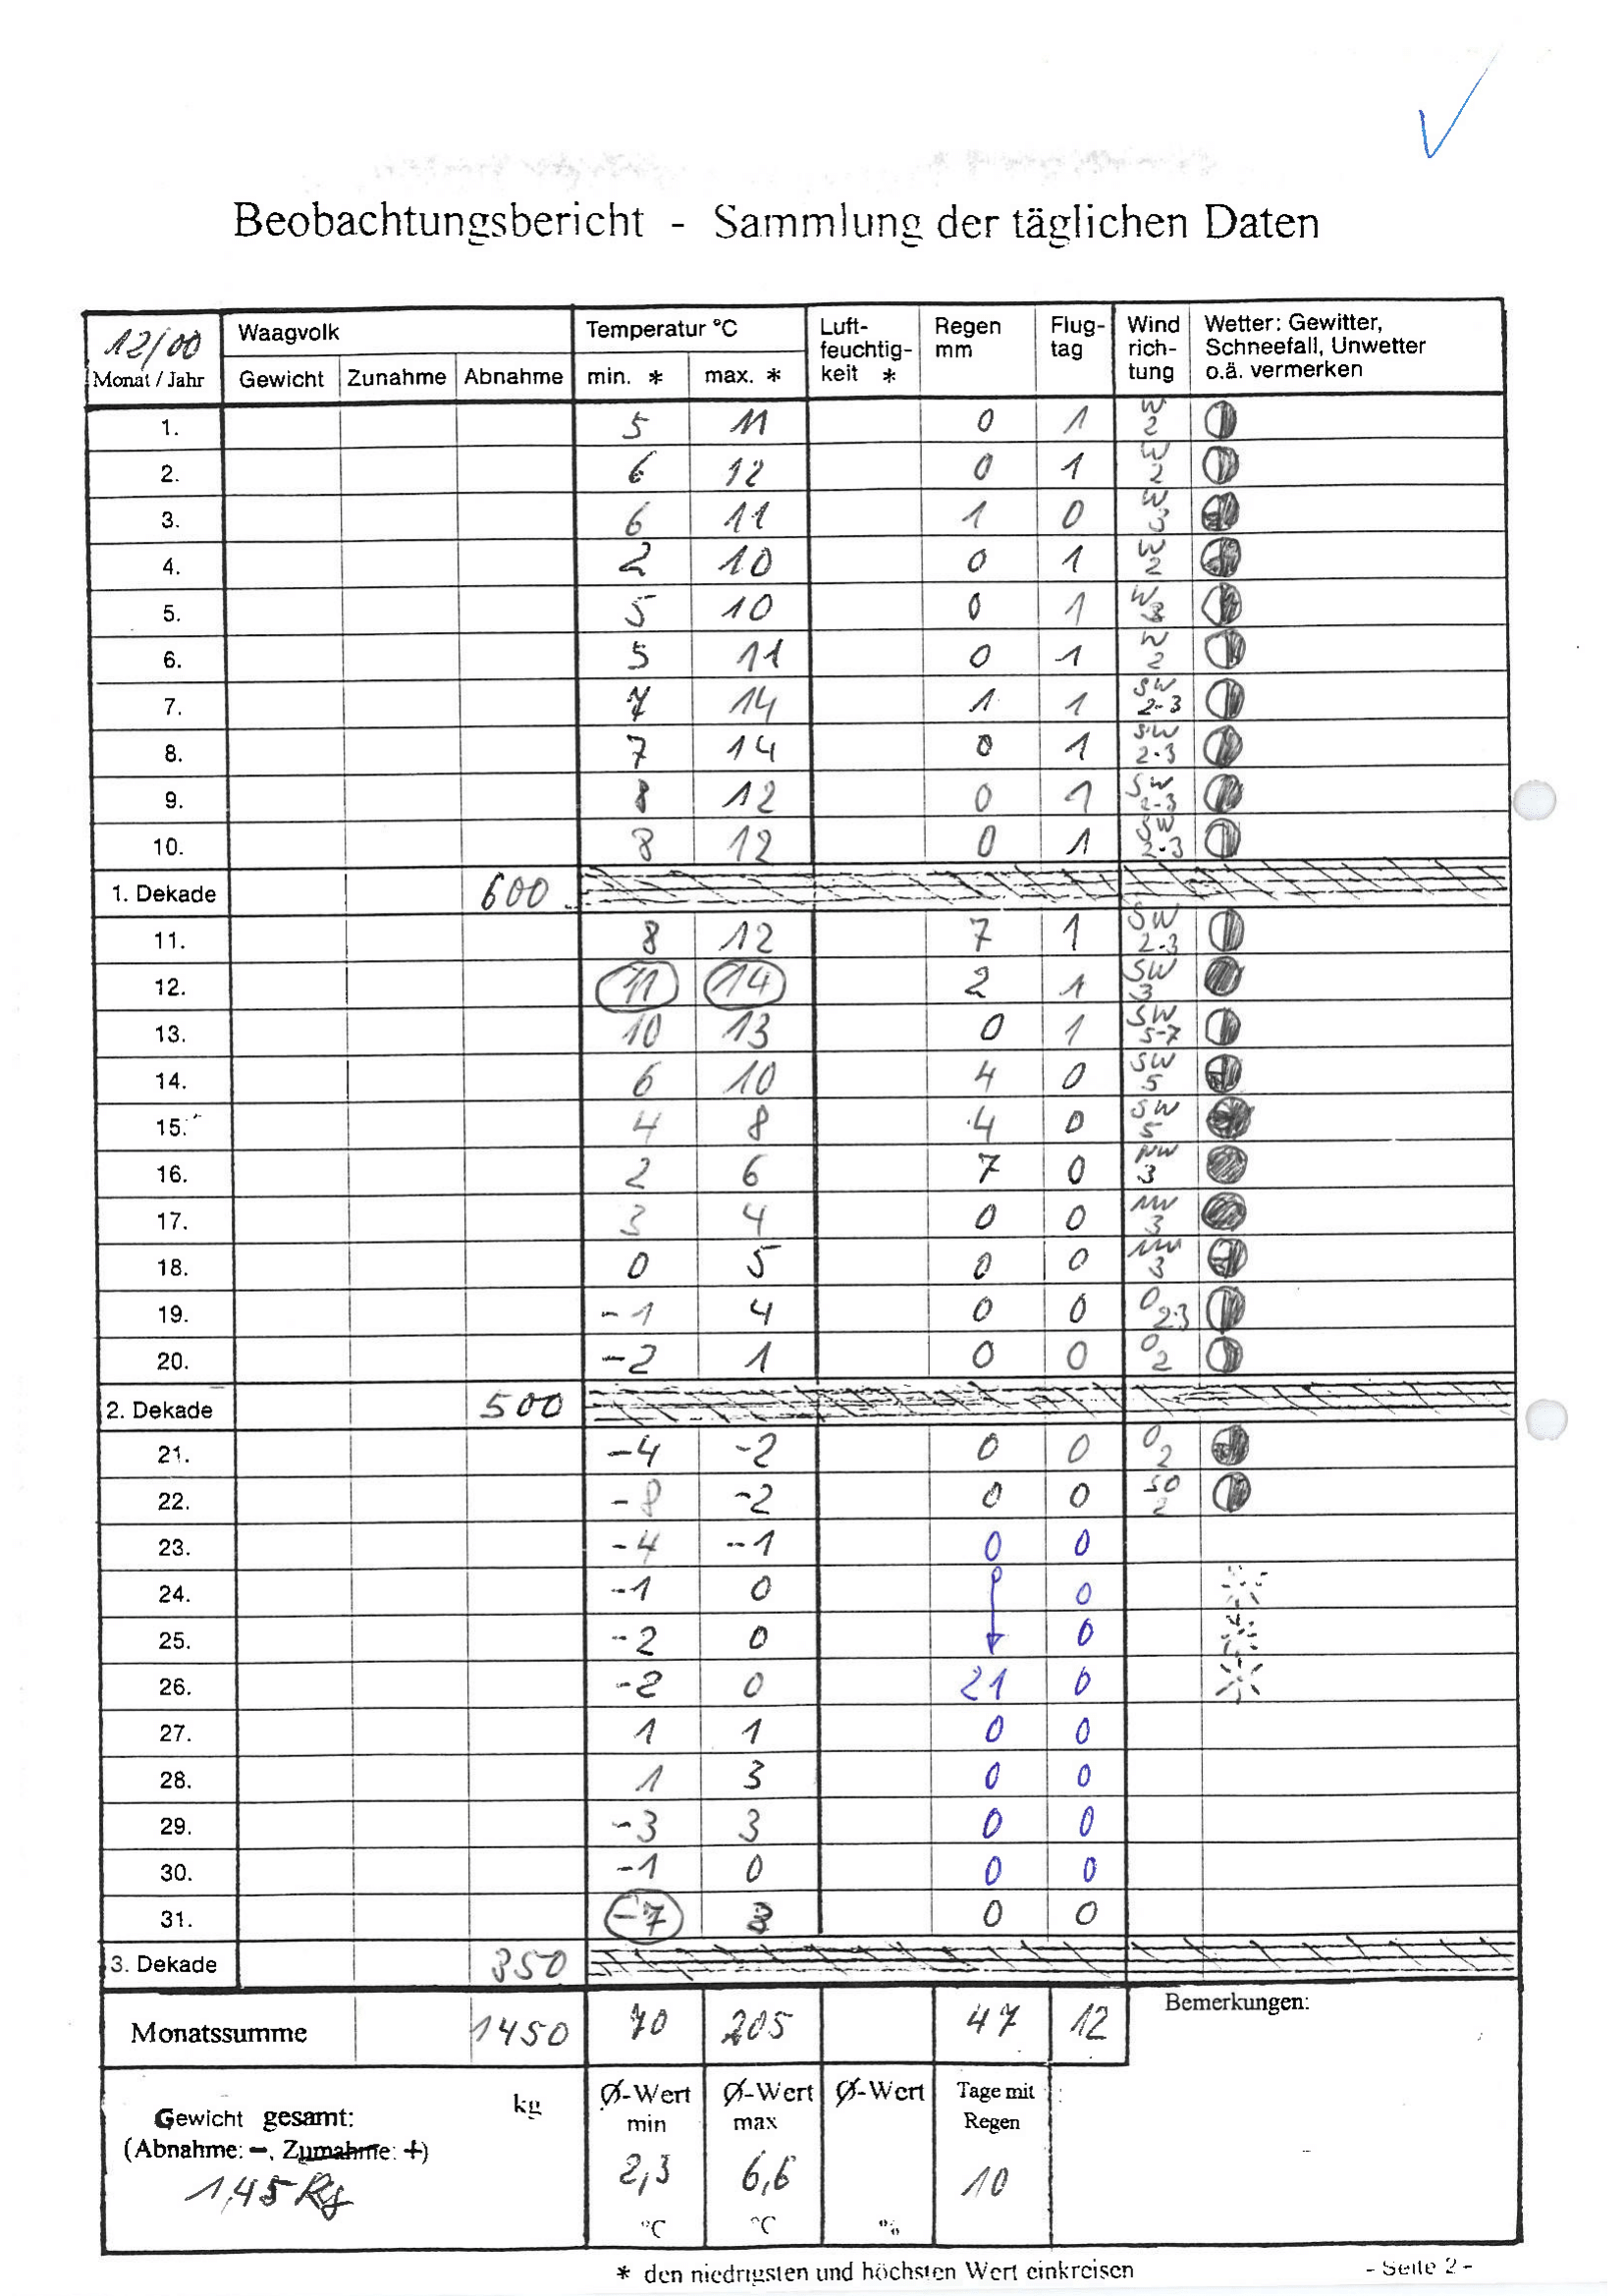 Beobachtungsbericht - Sammlung der täglichen Daten
12/00 Monat / Jahr Waagvolk Temperatur °C Luft-feuchtig-keit * Regen mm Flug-tag Wind rich-tung Wetter: Gewitter, Schneefall, Unwetter o.ä. vermerken
Gewicht Zunahme Abnahme min. * max. *
1. 5 11 0 1 W 2
2. 6 12 0 1 W 2
3. 6 11 1 0 W 3
4. 2 10 0 1 W 2
5. 5 10 0 1 W
6. 5 11 0 1 W 2
7. 7 14 1 1 SW 2-3
8. 7 14 0 1 SW 2-3
9. 8 12 0 1 SW 2-3
10. 8 12 0 1 SW 2-3
1. Dekade 600
11. 8 12 7 1 SW 2-3
12. 11 14 2 1 SW 3
13. 10 13 0 1 SW 5-7
14. 6 10 4 0 SW 5
15. 4 8 4 0 SW 5
16. 2 6 7 0 NW 3
17. 3 4 0 0 NW 3
18. 0 5 0 0 NW 3
19. -1 4 0 0 O 2-3
20. -2 1 0 0 O 2
2. Dekade 500
21. -4 -2 0 0 O 2
22. -8 -2 0 0 SO 2
23. -4 -1 0 0
24. -1 0 0
25. -2 0 0
26. -2 0 21 0
27. 1 1 0 0
28. 1 3 0 0
29. -3 3 0 0
30. -1 0 0 0
31. -7 0 0
3. Dekade 350
Monatssumme 1450 70 205 47 12 Bemerkungen:
Gewicht gesamt: kg Ø-Wert min Ø-Wert max Ø-Wert Tage mit Regen
(Abnahme: -, Zunahme: +)
1,45 Kg 2,3 6,6 10
°C °C %
* den niedrigsten und höchsten Wert einkreisen
- Seite 2 -